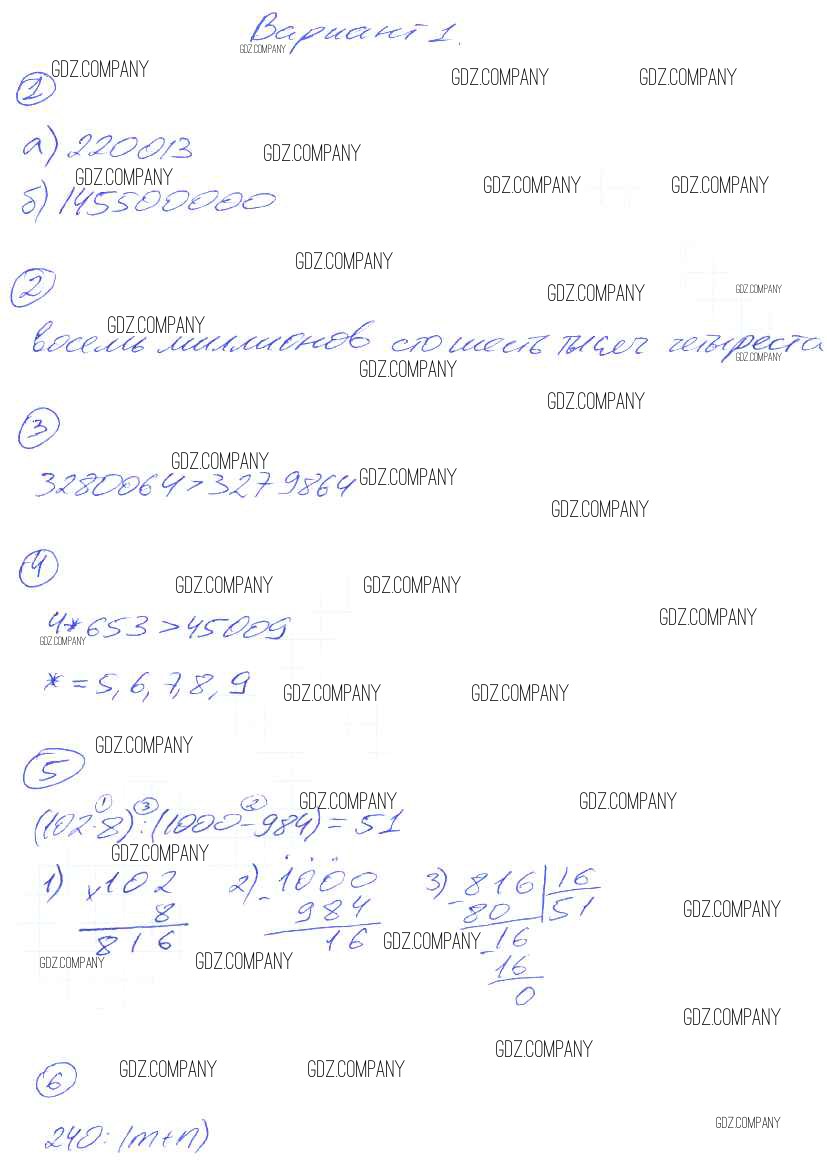 Вариант 1.
GDZ.COMPANY
GDZ.COMPANY GDZ.COMPANY GDZ.COMPANY
1
а) 220013 GDZ.COMPANY
GDZ.COMPANY GDZ.COMPANY GDZ.COMPANY
б) 145500000
GDZ.COMPANY
2 GDZ.COMPANY GDZ.COMPANY
GDZ.COMPANY
восемь миллионов сто шесть тысяч четыреста
GDZ.COMPANY GDZ.COMPANY
GDZ.COMPANY
3
GDZ.COMPANY
3280064 > 3279864 GDZ.COMPANY
GDZ.COMPANY
4
GDZ.COMPANY GDZ.COMPANY
4*653 > 45009 GDZ.COMPANY
GDZ.COMPANY
* = 5, 6, 7, 8, 9 GDZ.COMPANY GDZ.COMPANY
GDZ.COMPANY
5
1 3 2 GDZ.COMPANY GDZ.COMPANY
(102·8):(1000-984) = 51
GDZ.COMPANY
1) ×102 2) -1000 3) -816|16
8 984 80 51 GDZ.COMPANY
816 16 GDZ.COMPANY -16
GDZ.COMPANY GDZ.COMPANY 16
0
GDZ.COMPANY
GDZ.COMPANY
6 GDZ.COMPANY GDZ.COMPANY
GDZ.COMPANY
240:(m+n)